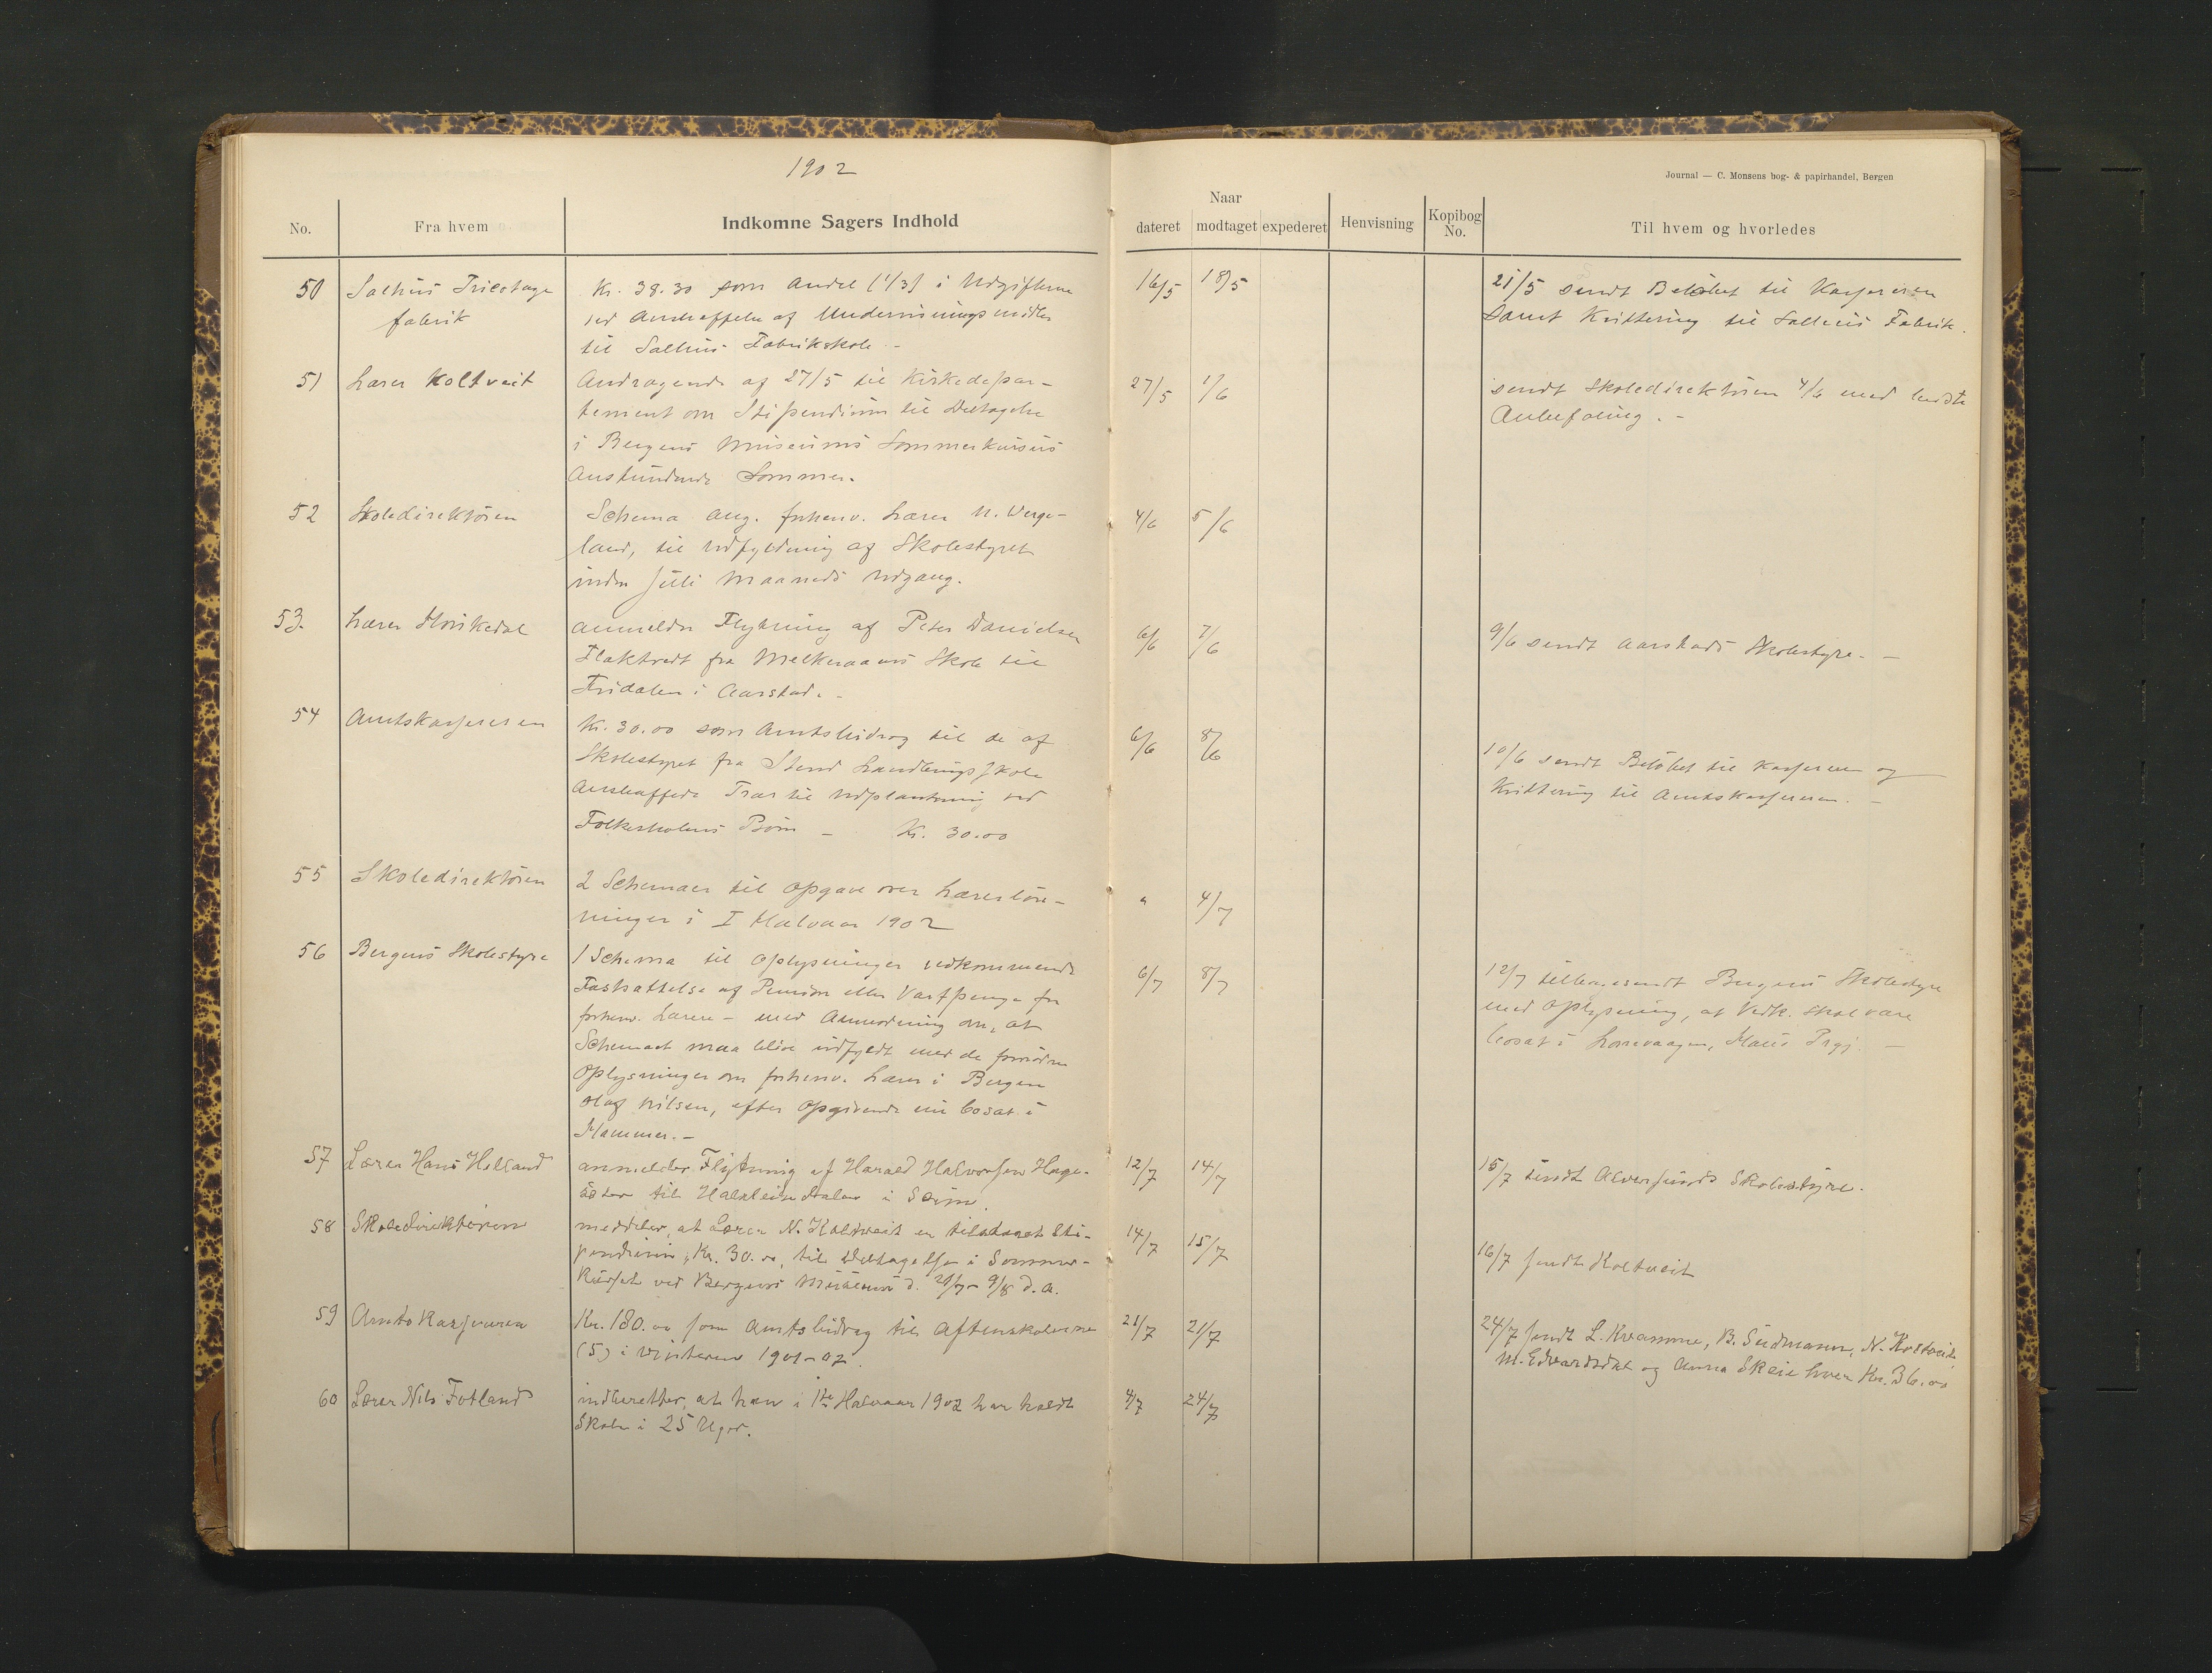 1902
Journal — C. Monsens bog- & papirhandel, Bergen
No.
Fra hvem
Indkomne Sagers Indhold
Naar
dateret
modtaget
expederet
Henvisning
Kopibog No.
Til hvem og hvorledes
50 Salhus Tricotage Kr. 38.30 som Andel (1/3) i Udgifterne 16/5 18/5 21/5 sendt Beløbet til Kassereren
fabrik ved Anskaffelse af Undervisningsmidler samt Kvittering til Salhus Fabrik.
til Salhus Fabrikskole. -
51 Lærer Koltveit Andragende af 27/5 til Kirkedepar- 27/5 1/6 sendt Skoledirektøren 4/6 med bedste
tement om Stipendium til Deltagelse Anbefaling. -
i Bergens Museums Sommerkursus
Anstundende Sommer.
52 Skoledirektøren Schema ang. forhenv. Lærer N. Verge- 4/6 5/6
land, til Udfyldning af Skolestyret
inden Juli Maaneds Udgang.
53. Lærer Storikedal anmelder Flytning af Peter Danielsen 6/6 7/6 9/6 sendt Aarstads Skolestyre. -
Flaktvedt fra Melkeraaens Skole til
Fridalen i Aarstad. -
54 Amtskassereren Kr. 30.00 som Amtsbidrag til de af 6/6 8/6 10/6 sendt Beløbet til Kassereren og
Skolestyret fra Stend Landbrugsskole Kvittering til Amtskassereren. -
Anskaffede Trær til Udplantning ved
Folkeskolens Børn - Kr. 30.00
55 Skoledirektøren 2 Schemaer til Opgave over Lærerløn- " 4/7
ninger i I Halvaar 1902
56 Bergens Skolestyre 1 Schema til Oplysninger vedkommende 6/7 8/7 12/7 tilbagesendt Bergens Skolestyre
Fastsættelse af Pension eller Vartpenge for med Oplysning, at Vedk. skal være
forhenv. Lærere - med Anmodning om, at bosat i Lonevaagen, Haus Prgj. -
Schemaet maa blive udfyldt med de fornødne
Oplysninger om forhenv. Lærer i Bergen
Olaf Nilsen, efter Opgivende nu bosat i
Hammer. -
57 Lærer Hans Helland anmelder Flytning af Harald Halvorsen Hage- 12/7 14/7 15/7 sendt Alversunds Skolestyre.
til i Seim.
58 Skoledirektøren meddeler, at Lærer N. Koltveit er tilstaaet Sti- 14/7 15/7 16/7 sendt Koltveit
pendium, Kr. 30.00, til Deltagelse i Sommer-
kurset ved Bergens Museum d. 9/8 d. A.
59 Amtskassereren Kr. 180.00 som Amtsbidrag til Aftenskolerne 21/7 21/7 24/7 sendt L. Kvamme, B. Sudmann, N. Koltveit,
(5) i Vinteren 1901-02. M. Edvardsdal og Anna Skeie hver Kr. 36.00
60 Lærer Nils Fotland indberetter, at han i 1ste Halvaar 1902 har holdt 4/7 24/7
Skole i 25 Uger.